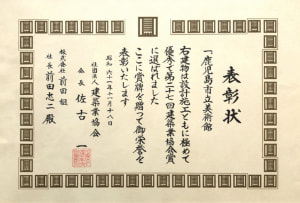 表彰状
一、鹿児島市立美術館
右建物は設計施工ともに極めて
優秀で第二十七回建築業協会賞
に選ばれました
ここに賞牌を贈って御栄誉を
表彰いたします
昭和六十一年十一月十八日
社団法人 建築業協会
会長 佐古一
株式会社 前田組
社長 前田忠二殿